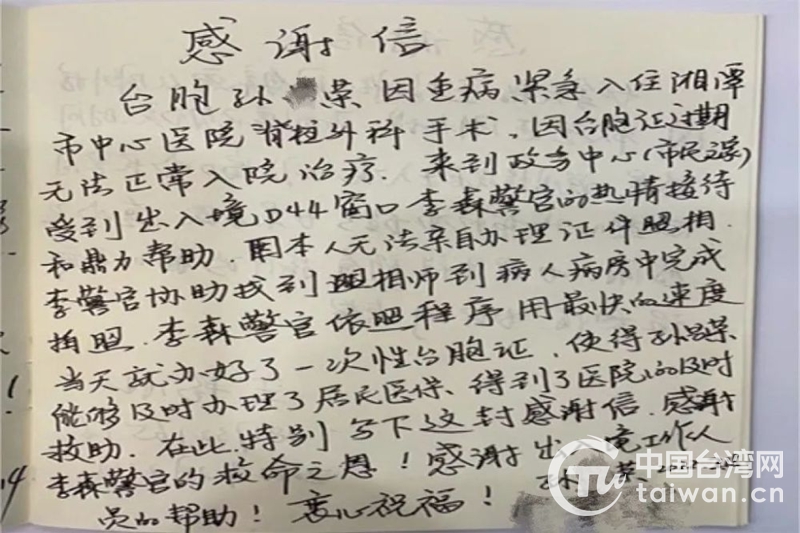 感谢信
台胞孙 荣因重病紧急入住湘潭
市中心医院脊柱外科手术，因台胞证过期
无法正常入院治疗．来到政务中心(市民之家)
受到出入境D44窗口李森警官的热情接待
和鼎力帮助．因本人无法亲自办理证件照相．
李警官协助找到照相师到病人病房中完成
拍照．李森警官依照程序用最快的速度
当天就办好了一次性台胞证，使得孙 荣
能够及时办理了居民医保．得到了医院的及时
救助．在此特别写下这封感谢信．感谢
李森警官的救命之恩！感谢出 境工作人
员的帮助！衷心祝福！ 孙 荣
中国台湾网
taiwan.cn
！
14